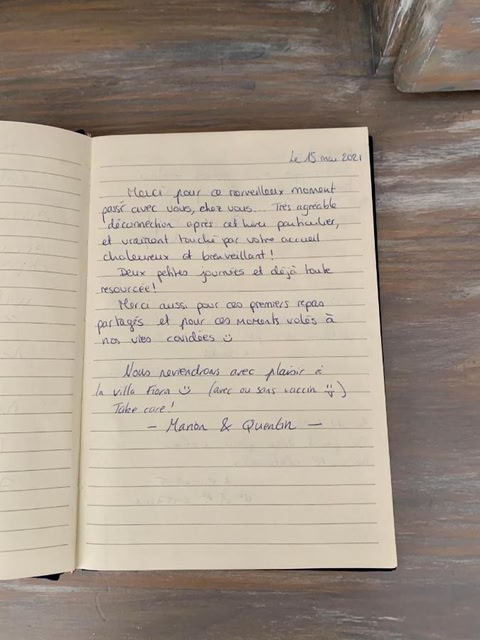 Le 15 mai 2021
Merci pour ce merveilleux moment
passé avec vous, chez vous... Très agréable
déconnection après cet hiver particulier,
et vraiment touché par votre accueil
chaleureux et bienveillant !
Deux petites journées et déjà toute
resourcée !
Merci aussi pour ces premiers repas
partagés et pour ces moments volés à
nos vies covidées
Nous reviendrons avec plaisir à
la villa Fiora (avec ou sans vaccin )
Take care !
— Manon & Quentin —